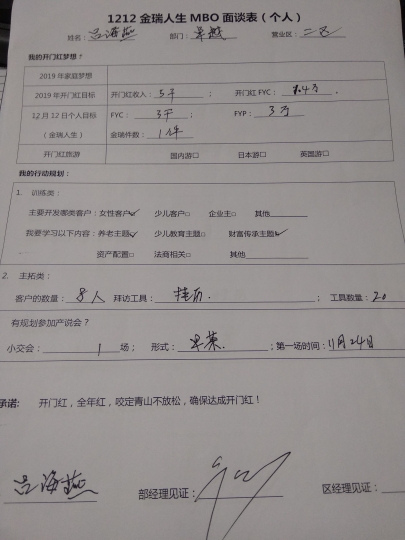 1212金瑞人生MBO面谈表（个人）
姓名：吕海燕 部门：卓越 营业区：二区
我的开门红梦想：
2019年家庭梦想
2019年开门红目标 开门红收入：5千； 开门红FYC：1.4万.
12月12日个人目标（金瑞人生） FYC：3千； FYP：3万
金瑞件数：1件
开门红旅游 国内游□ 日本游□ 英国游□
我的行动规划：
1. 训练类：
主要开发哪类客户：女性客户☑ 少儿客户□ 企业主□ 其他
我要学习以下内容：养老主题☑ 少儿教育主题□ 财富传承主题☑
资产配置□ 法商相关□ 其他
2. 主拓类：
客户的数量：8人 拜访工具：挂历. ；工具数量：20
有规划参加产说会？
小交会：1场； 形式： ；第一场时间：11月24日
承诺： 开门红，全年红，咬定青山不放松，确保达成开门红！
吕海燕 部经理见证： 区经理见证：